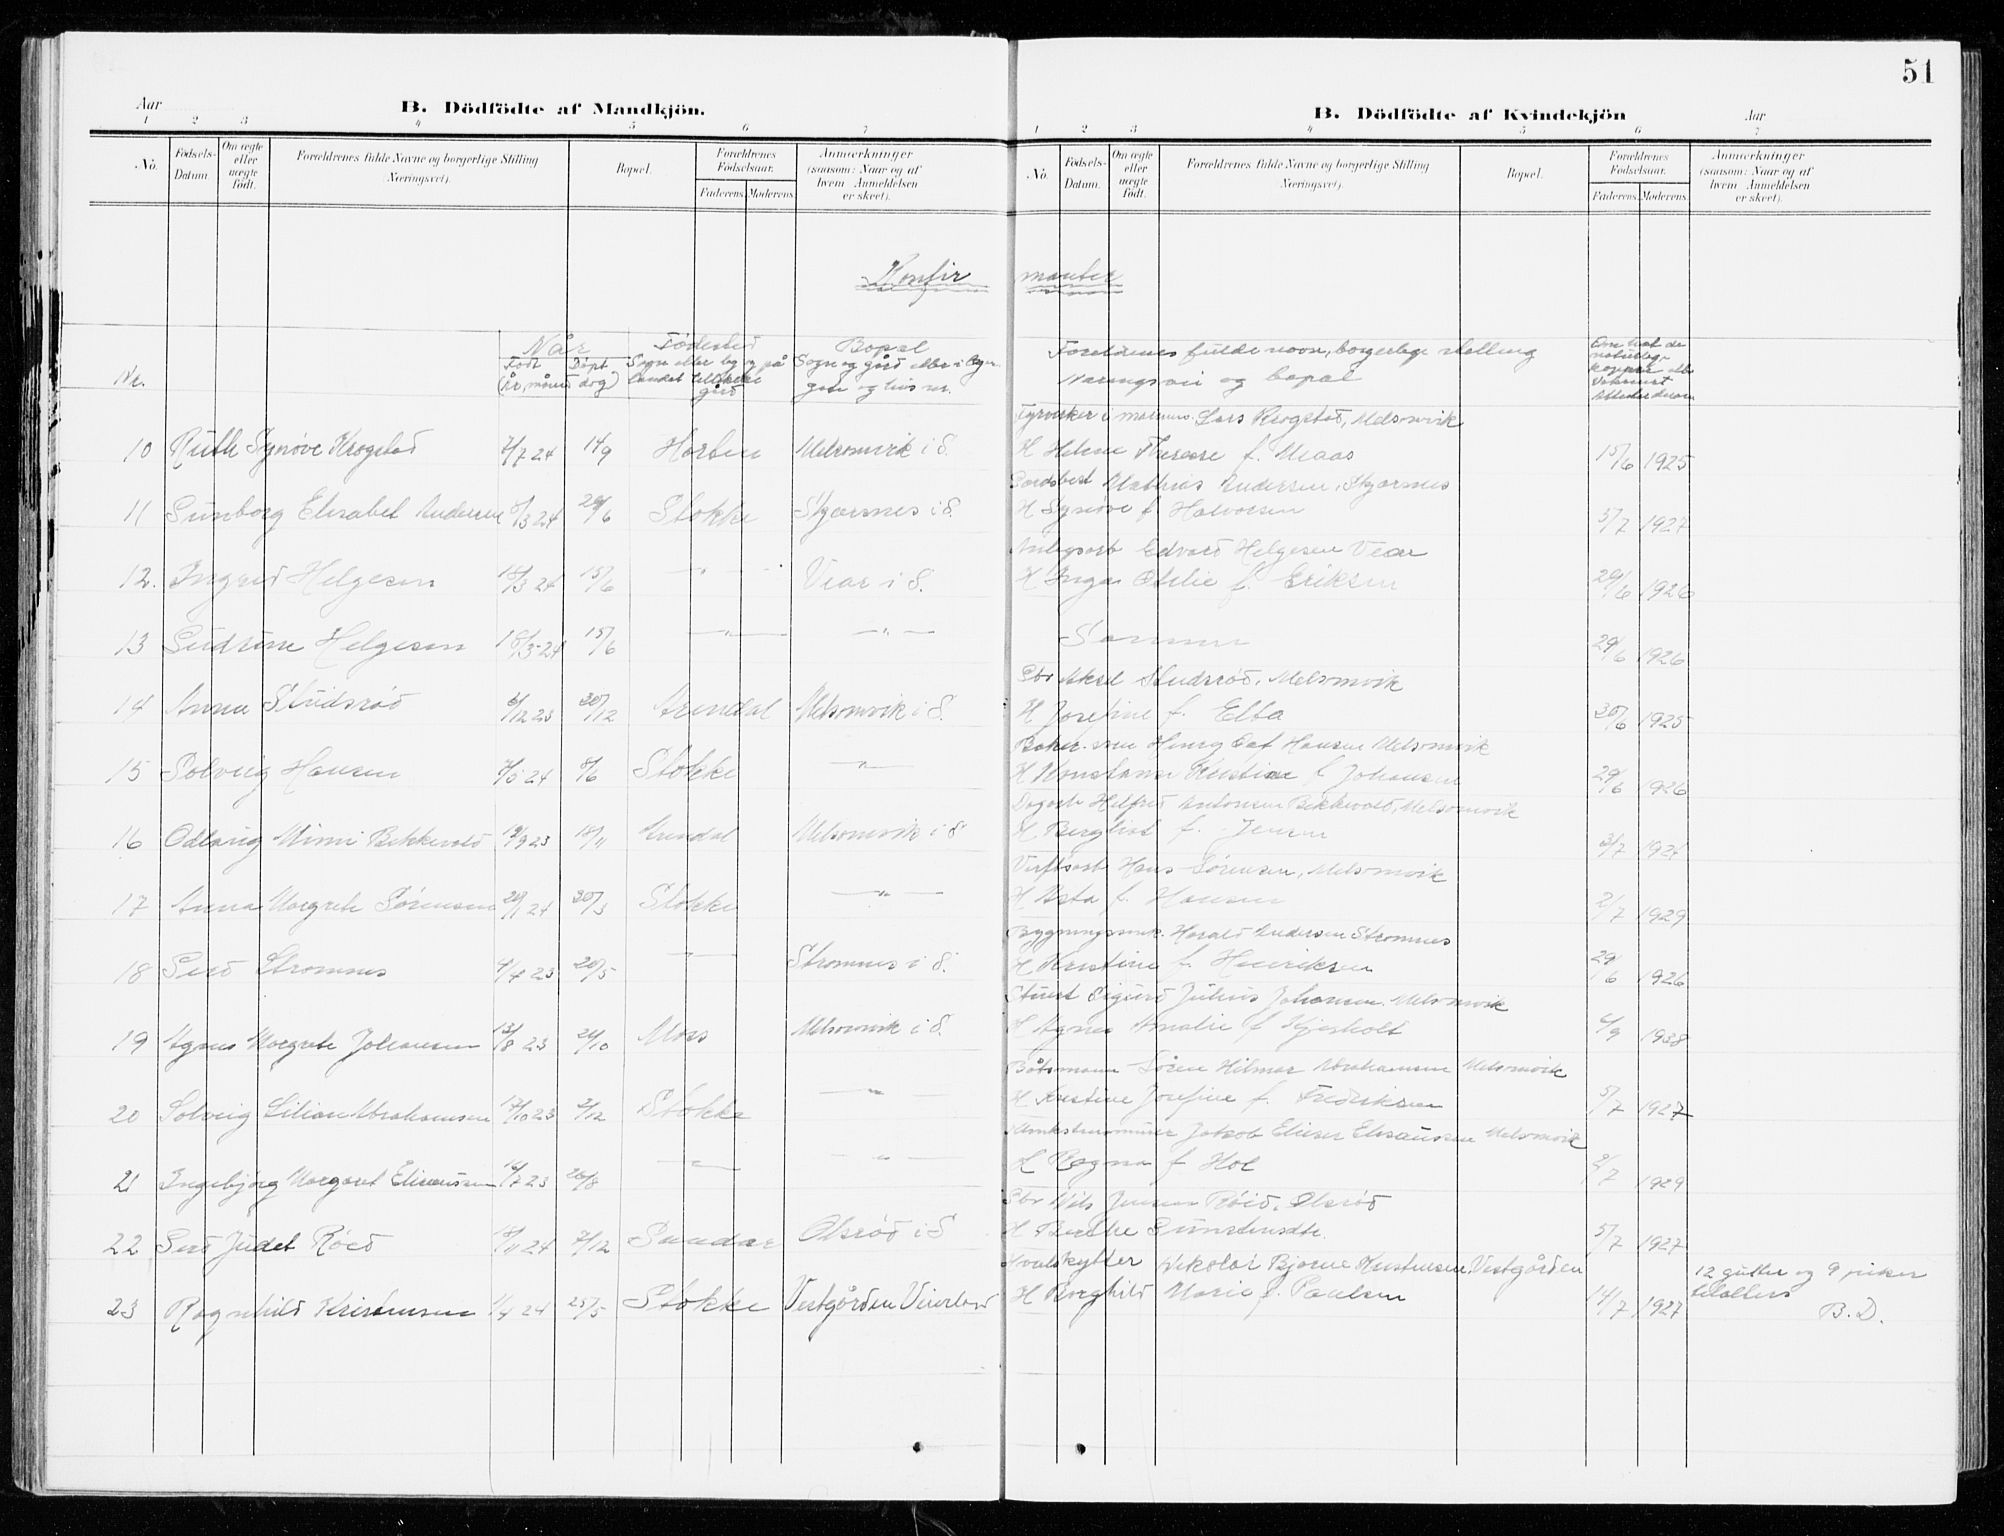 51
Aar
B. Dödfödte af Mandkjön.
1 2 3 4 5 6 7
No.
Födsels-Datum.
Om ægte eller uægte födt.
Forældrenes fulde Navne og borgerlige Stilling (Næringsvei).
Bopæl.
Forældrenes Födselsaar.
Faderens. Moderens.
Anmærkninger (saasom: Naar og af hvem Anmeldelsen er skeet).
B. Dödfödte af Kvindekjön
Aar
1 2 3 4 5 6 7
No.
Födsels-Datum.
Om ægte eller uægte födt.
Forældrenes fulde Navne og borgerlige Stilling (Næringsvei).
Bopæl.
Forældrenes Födselsaar.
Faderens. Moderens.
Anmærkninger (saasom: Naar og af hvem Anmeldelsen er skeet).
Konfir manter
Nr.
Når
Født Døpt
(År, måned dag)
Fødested
Sogn eller by og på
Landet tillike
gård
Bopel
Sogn og gård eller i byen
gate og hus nr.
Foreldrenes fulde navn, borgerlige stilling
Næringsvei og bopel
Lars Krogstad, Melsomvik
10 Ruth Synøve Krogstad 7/7 24 14/9 Horten Melsomvik i S. H Helene Therese f. Maas 15/6 1925
Mathias Andersen, Skjærsnes
11 Gunborg Elisabet Andersen 8/3 24 29/6 Stokke Skjærsnes i S. H Synøve f Halvorsen 5/7 1927
Edvard Helgesen Vear
12. Ingrid Helgesen 18/3 24 15/6 — " — Vear i S. H Inga Otilie f. Eriksen 29/6 1926
13 Gudrun Helgesen 18/3-24 15/6 — " — — " — Samme 29/6 1926
Gbr Aksel Studsrød, Melsomvik
14 Anna Studsrød 6/12 23 30/12 Arendal Melsomvik i S. H Josefine f. Elta 30/6 1925
Hansen Melsomvik
15 Solveig Hansen 7/5 24 8/6 Stokke — " — H Konstanse Kristine f Johansen 29/6 1926
Helfred Antonsen Bekkevold, Melsomvik
16 Odlaug Minni Bekkevold 19/9 23 18/11 Arendal Melsomvik i S H Bergliot f. Jensen 3/7 1924
Verftsarb Hans Sørensen, Melsomvik
17 Anna Margrete Sørensen 29/1 24 30/3 Stokke — " — H Asta f. Hansen 2/7 1929
Harald Andersen Stromnes
18 Gerd Stromnes 4/4 23 20/5 — " — Stromnes i S. H Kristine f. Henriksen 29/6 1926
Sigurd Julius Johansen. Melsomvik
19 Agnes Margrete Johansen 13/8 23 21/10 Moss Melsomvik i S. H Agnes Amalie f Kjersholt 4/9 1938
Båtsmann Søren Hilmar Abrahamsen Melsomvik
20 Solveig Lilian Abrahamsen 17/10 23 2/12 Stokke — " — H Kristine Josefine f. Fredriksen 5/7 1927
Jakob Elieser Eliaussen Melsomvik
21 Ingebjørg Margaret Eliaussen 16/7 23 26/8 — " — — " — H Ragna f Hol 2/7 1929
Gbr Nils Jensen Røed, Olsrød
22 Gerd Judet Røed 18/11 24 7/12 Sandar Olsrød i S H Berthe Gunstensdtr. 5/7 1927
Hvalskytter Nikolai Bjarne Kristensen, Vestgården
23 Ragnhild Kristensen 1/4 24 25/5 Stokke Vestgården Veierland H Borghild Marie f. Paulsen 14/7 1927
12 gutter og 9 piker
tilsettes
B. D.